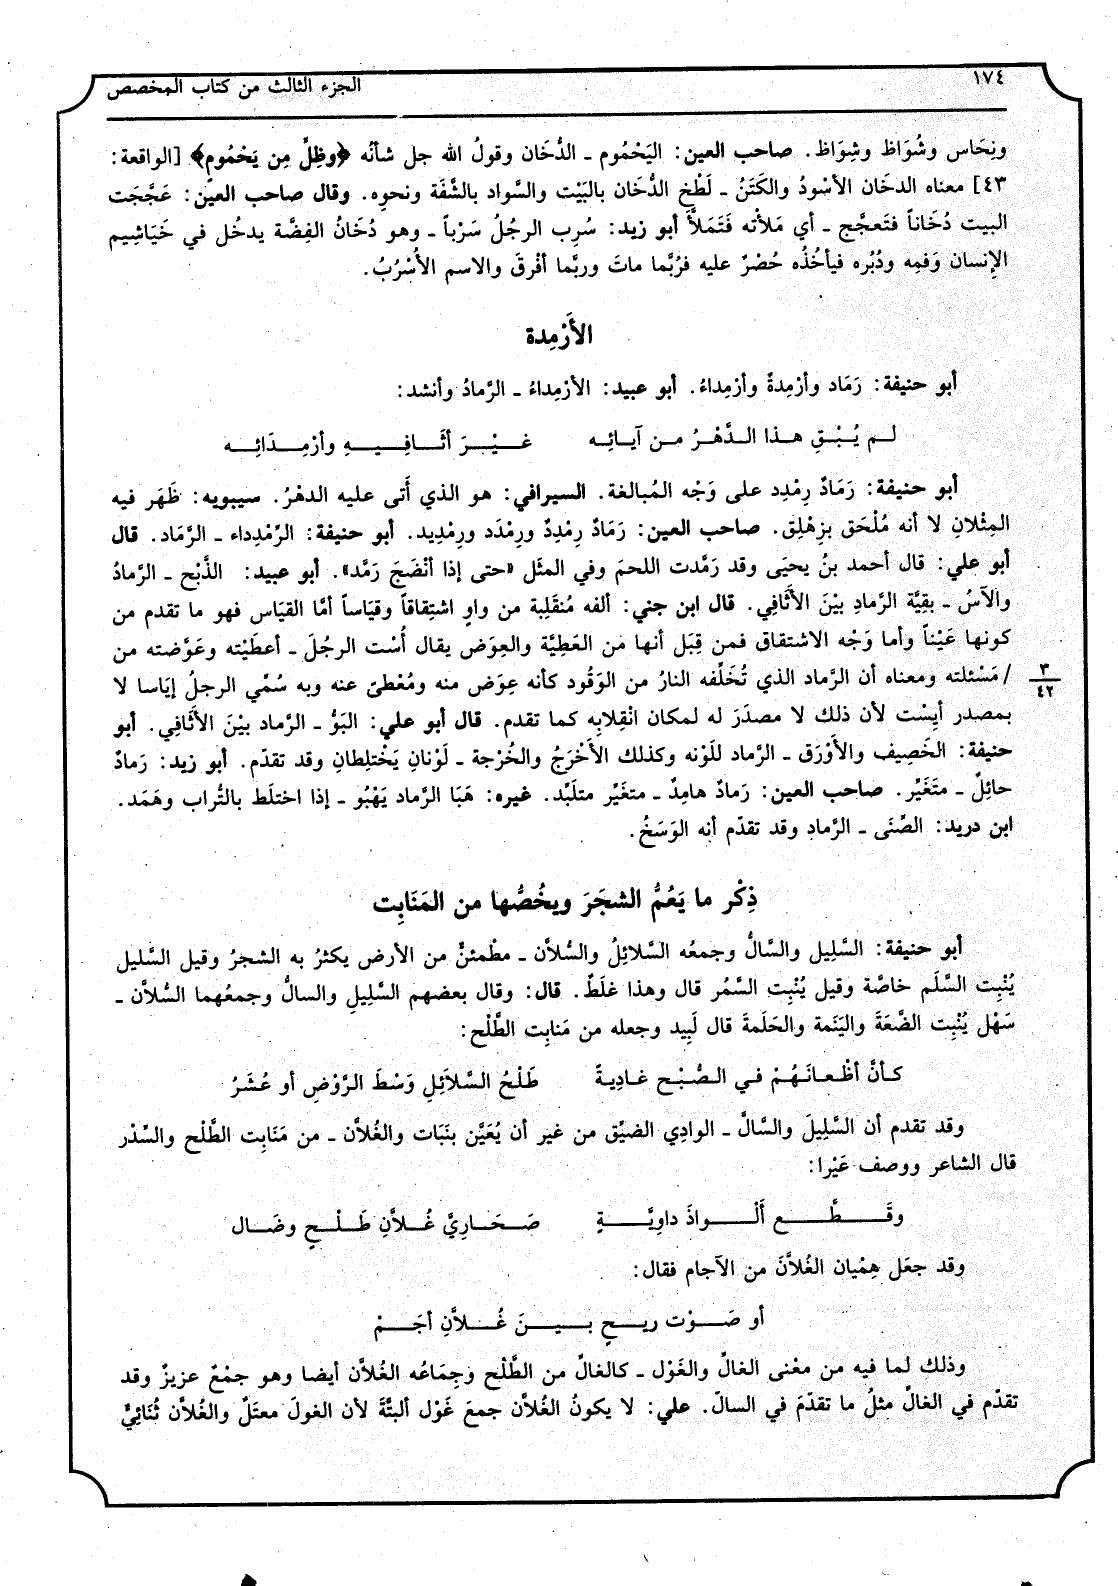 ١٧٤
الجزء الثالث من كتاب المخصص
ونِحَاس وشُوَاظ وشِوَاظ. صاحب العين: اليَحْمُوم ـ الدُّخَان وقولُ الله جل شأنُه ﴿وظِلٍّ مِن يَحْمُوم﴾ [الواقعة:
٤٣] معناه الدخَان الأسْودُ والكَتَنُ ـ لَطْخ الدُّخَان بالبَيْت والسَّواد بالشَّفَة ونحوِه. وقال صاحب العين: عَجَّجَت
البيت دُخَاناً فتَعجَّج ـ أي مَلأتْه فَتَمَلَّأ أبو زيد: سُرِب الرجُلُ سَرْباً ـ وهو دُخَانُ الفِضَّة يدخُل في خَيَاشيم
الإنسان وَفمِه ودُبُره فيأخُذُه حُصْرٌ عليه فرُبَّما ماتَ وربَّما أفْرقَ والاسم الأُسْرُبُ.
الأَرْمِدة
أبو حنيفة: رَمَاد وأرْمِدةٌ وأرْمِداءُ. أبو عبيد: الأرْمِداءُ ـ الرَّمادُ وأنشد:
لـم يُـبْـقِ هـذا الـدَّهْـرُ مـن آيـائِـه غَـيْـرَ أثَـافِـيـهِ وأرْمِـدَائِـه
أبو حنيفة: رَمَادٌ رِمْدِد على وَجْه المُبالغة. السيرافي: هو الذي أَتى عليه الدهْرُ. سيبويه: ظَهَر فيه
المِثْلانِ لا أنه مُلْحَق بِزِهْلِقٍ. صاحب العين: رَمَادٌ رِمْدِدٌ ورِمْدَد ورِمْدِيد. أبو حنيفة: الرِّمْدِداء ـ الرَّماد. قال
أبو علي: قال أحمد بنُ يحيَى وقد رَمَّدت اللحمَ وفي المثَل «حتى إذا أنْضَجَ رَمَّد». أبو عبيد: الذَّبْح ـ الرَّمادُ
والآسُ ـ بقِيَّة الرَّمادِ بيْنَ الأَثَافِي. قال ابن جني: ألفه مُنقَلِبة من واوٍ اشتِقاقاً وقيَاساً أمَّا القيَاس فهو ما تقدم من
كونها عَيْناً وأما وَجْه الاشتقاق فمن قِبَل أنها من العَطِيَّة والعِوَض يقال أُسْت الرجُلَ ـ أعطَيْته وعَوَّضته من
/ مَسْئلته ومعناه أن الرَّماد الذي تُخَلِّفه النارُ من الوَقُود كأنه عِوَض منه ومُعْطىً عنه وبه سُمِّي الرجلُ إيَاسا لا
٣
٤٢
بمصدر أيِسْت لأن ذلك لا مصدَرَ له لمكان انْقِلابِه كما تقدم. قال أبو علي: البَوُّ ـ الرَّماد بيْنَ الأَثَافِي. أبو
حنيفة: الخَصِيف والأَوْرَق ـ الرَّماد للَوْنه وكذلك الأَخْرَجُ والخُرْجة ـ لَوْنانِ يَخْتلِطانِ وقد تقدّم. أبو زيد: رَمَادٌ
حائِلٌ ـ متَغَيِّر. صاحب العين: رَمَادٌ هامِدٌ ـ متغَيِّر متلَبِّد. غيره: هَبَا الرَّماد يَهْبُو ـ إذا اختلَط بالتُّراب وهَمَد.
ابن دريد: الصِّنَى ـ الرَّمادِ وقد تقدّم أنه الوَسَخُ.
ذِكْر ما يَعُمُّ الشجَرَ ويخُصُّها من المَنَابِت
أبو حنيفة: السَّلِيل والسَّالُّ وجمعُه السَّلائِلُ والسُّلاَّن ـ مطْمئنٌّ من الأرض يكثرُ به الشجرُ وقيل السَّليل
يُنْبِت السَّلَم خاصَّة وقيل يُنْبِت السَّمُر قال وهذا غلَطٌ. قال: وقال بعضهم السَّلِيلِ والسالُّ وجمعُهما السُّلاَّن ـ
سَهْل يُنْبِت الضَّعَةَ واليَنَمة والحَلَمةَ قال لَبِيد وجعله من مَنابِت الطَّلْح:
كـأنَّ أظْـعـانَـهُـمْ فـي الـصُّبْـحِ غـادِيـةً طَلْحُ السَّلاَئِلِ وَسْطَ الرَّوْضِ أو عُشَرُ
وقد تقدم أن السَّلِيلَ والسَّالَّ ـ الوادِي الضيِّق من غير أن يُعَيَّن بنَبَات والغُلاَّن ـ من مَنَابِت الطَّلْح والسِّدْر
قال الشاعر ووصف عَيْرا:
وقَـطَّـع أَلْـواذَ داوِيَّـةٍ صَـحَـارِيَّ غُـلاَّنِ طَـلْـحٍ وضَـال
وقد جعَل هِمْيان الغُلاَّنَ من الآجام فقال:
أو صَـوْت ريـحٍ بـيـنَ غُـلاَّنِ أجَـمْ
وذلك لما فيه من معْنى الغالِّ والغَوْل ـ كالغالِّ من الطَّلْح وجِمَاعُه الغُلاَّن أيضا وهو جمْعٌ عزيزٌ وقد
تقدّم في الغالِّ مثلُ ما تقدّمَ في السالّ. علي: لا يكونُ الغُلاَّن جمعَ غَوْل ألبتَّةَ لأن الغولَ معتَلّ والغُلاَّن ثُنَائِيٌّ